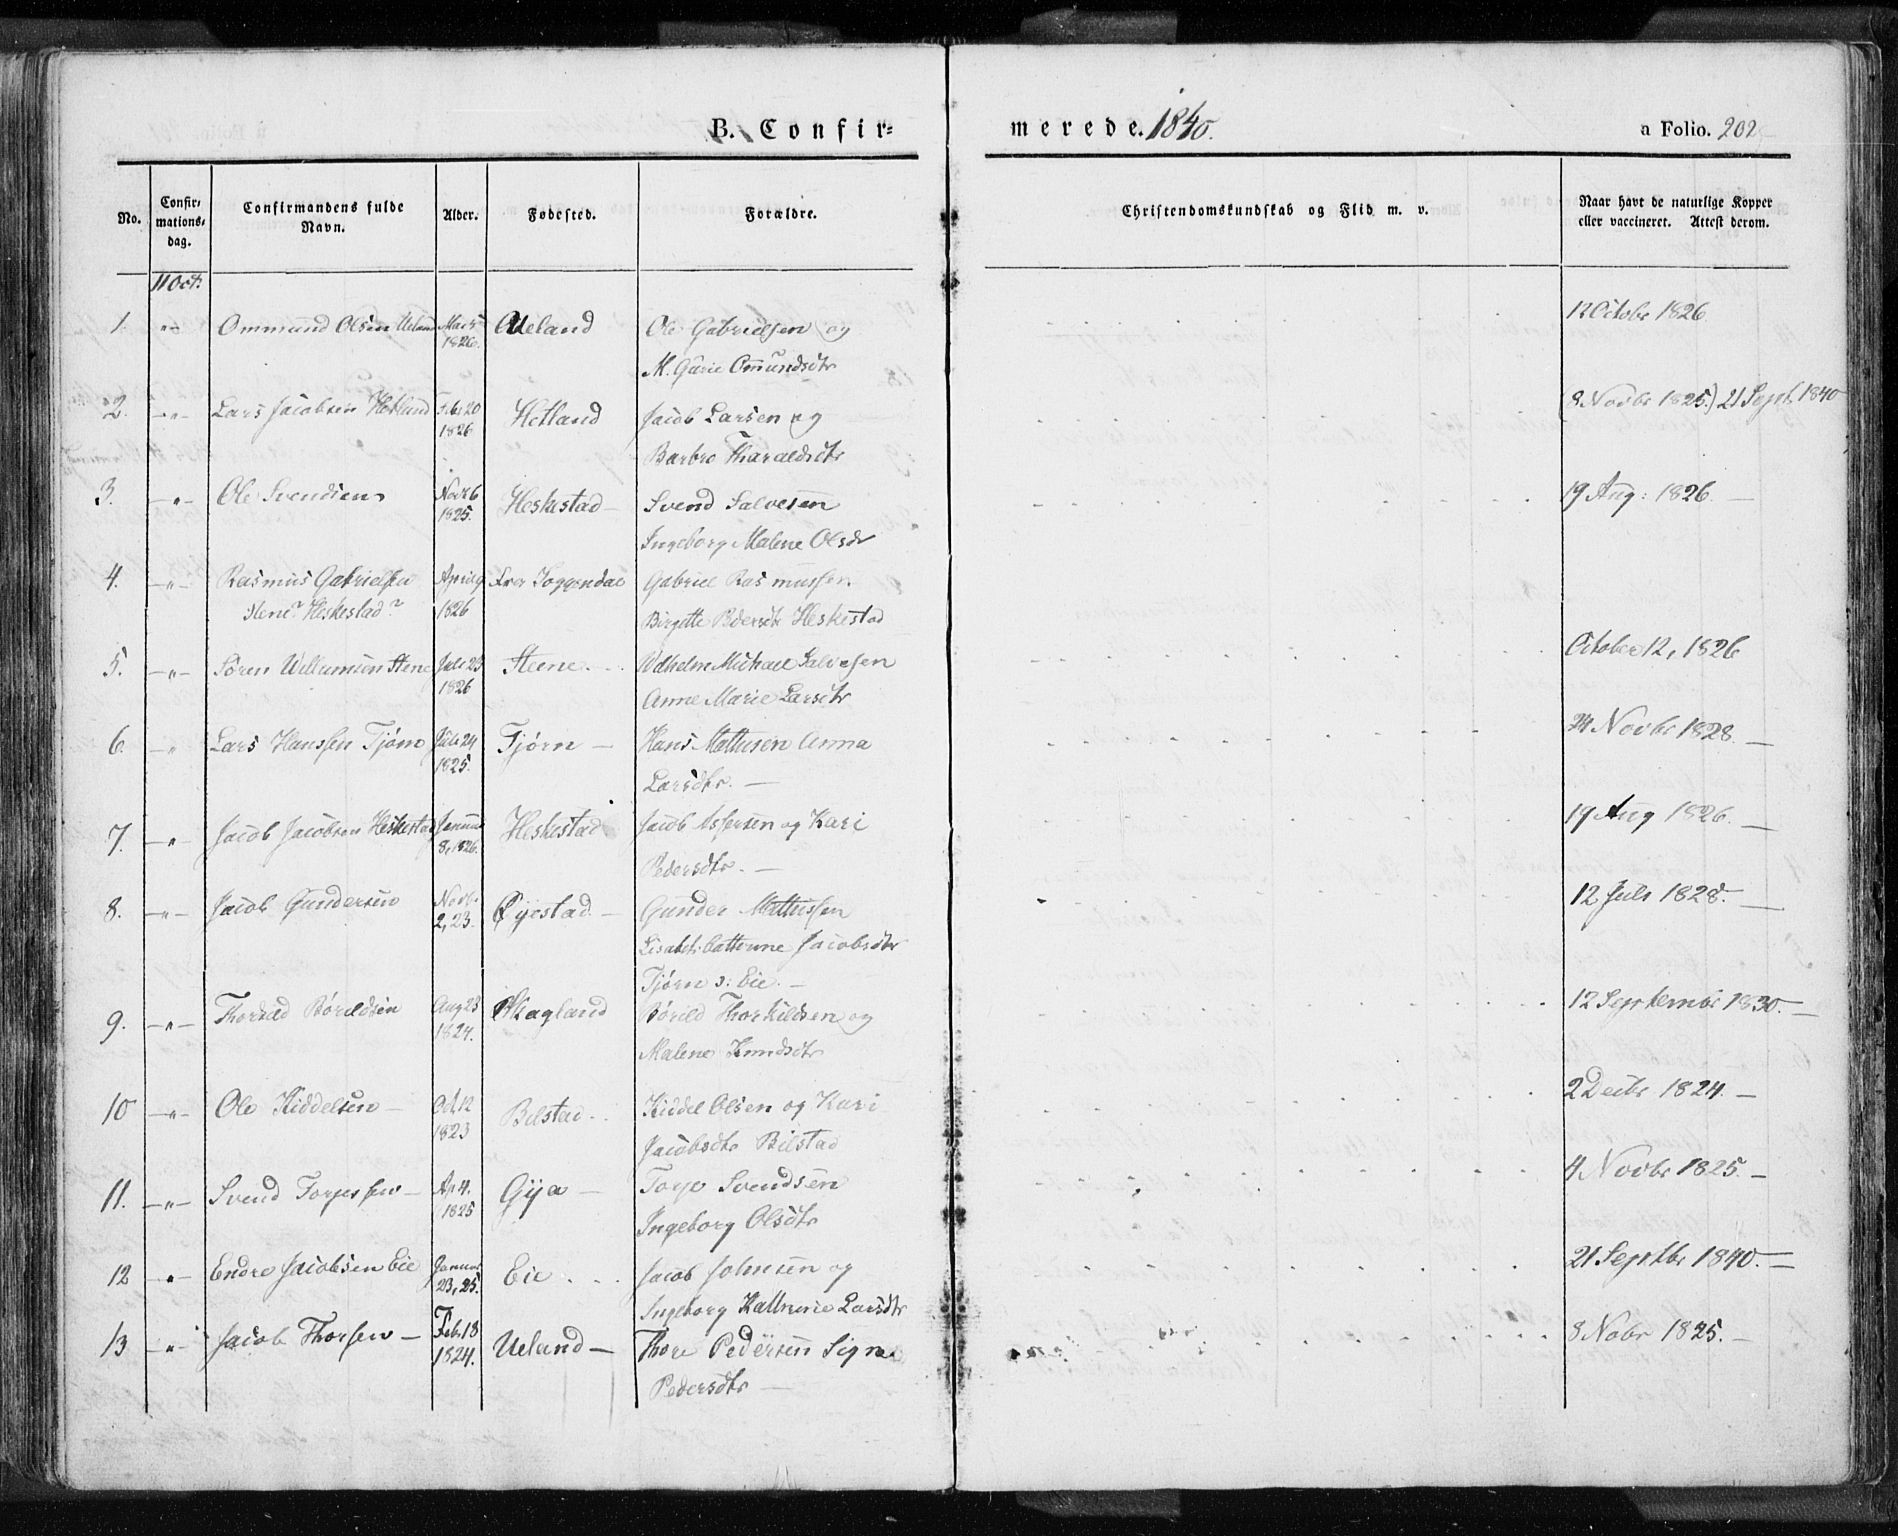 B. Confir= merede. 1840. a Folio. 202
No. Confir= mations= dag. Confirmandens fulde Navn. Alder. Fødested. Forældre. Christendomskundskab og Flid m. v. Naar havt de naturlige Kopper eller vaccineret. Attest derom.
11 Oct:
1. -"- Ommund Olsen Ueland Mar 5 Ueland Ole Gabrielsen og 12 Octobr 1826
1826. M. Gurie Omundsdtr
2. -"- Lars Jacobsen Hetland Feb 20 Hetland Jacob Larsen og 8 Novbr 1825.) 21 Sept. 1840
1826 Barbro Tharaldsdtr
3. -"- Ole Svendsen Novb 6 Heskestad - Svend Salvesen 19 Aug: 1826. -
1825. Ingeborg Malene Olsdr
4. -"- Rasmus Gabrielsen April 9 Soggendal Gabriel Rasmussen
Stene? Heskestad? 1826 Birgitte Pedersdtr Heskestad
5. -"- Sören Willumsen Stene Juli 23 Steene. Vilhelm Michael Salvesen October 12, 1826
1826 Anne Marie Larsdtr
6. " Lars Hanssen Tjørn Juli 24 Tjørn - Hans Mathisen Anna 24 Novbr 1828. -
1825. Larsdtr. -
7. -"- Jacob Jacobsen Heskestad Januar Heskestad Jacob Assersen og Kari 19 Aug 1826. -
8, 1826. Pedersdtr. -
8. -"- Jacob Gundersen Novb. Øyestad - Gunder Mathissen 12 Juli 1828. -
2, 23. Lisabet Cathrine Jacobsdtr
Tjørn s: Eie. -
9. -"- Børildsen Aug 23 Skagland Børild Thorkildsen og 12 Septembr 1830. -
1824. Malene Knudsdtr
10 -"- Ole Kiddelsen - Oct. 12 Bilstad Kiddel Olsen og Kari 2 Decbr 1824. -
1823 Jacobsdtr Bilstad
11. -"- Svend Torjessen - Ap 4. Gya - Torje Svendsen 4 Novbr 1825. -
1825 Ingeborg Olsdtr
12 -"- Endre Jacobsen Eie Januar Eie Jacob Johnsen og 21 Septbr 1840. -
23, 25. Ingeborg Kathrine Larsdtr
13 -"- Jacob Thorsen - Feb. 18 Ueland - Thore Pedersen Signe 8 Nobr 1825. -
1824. Pedersdtr -